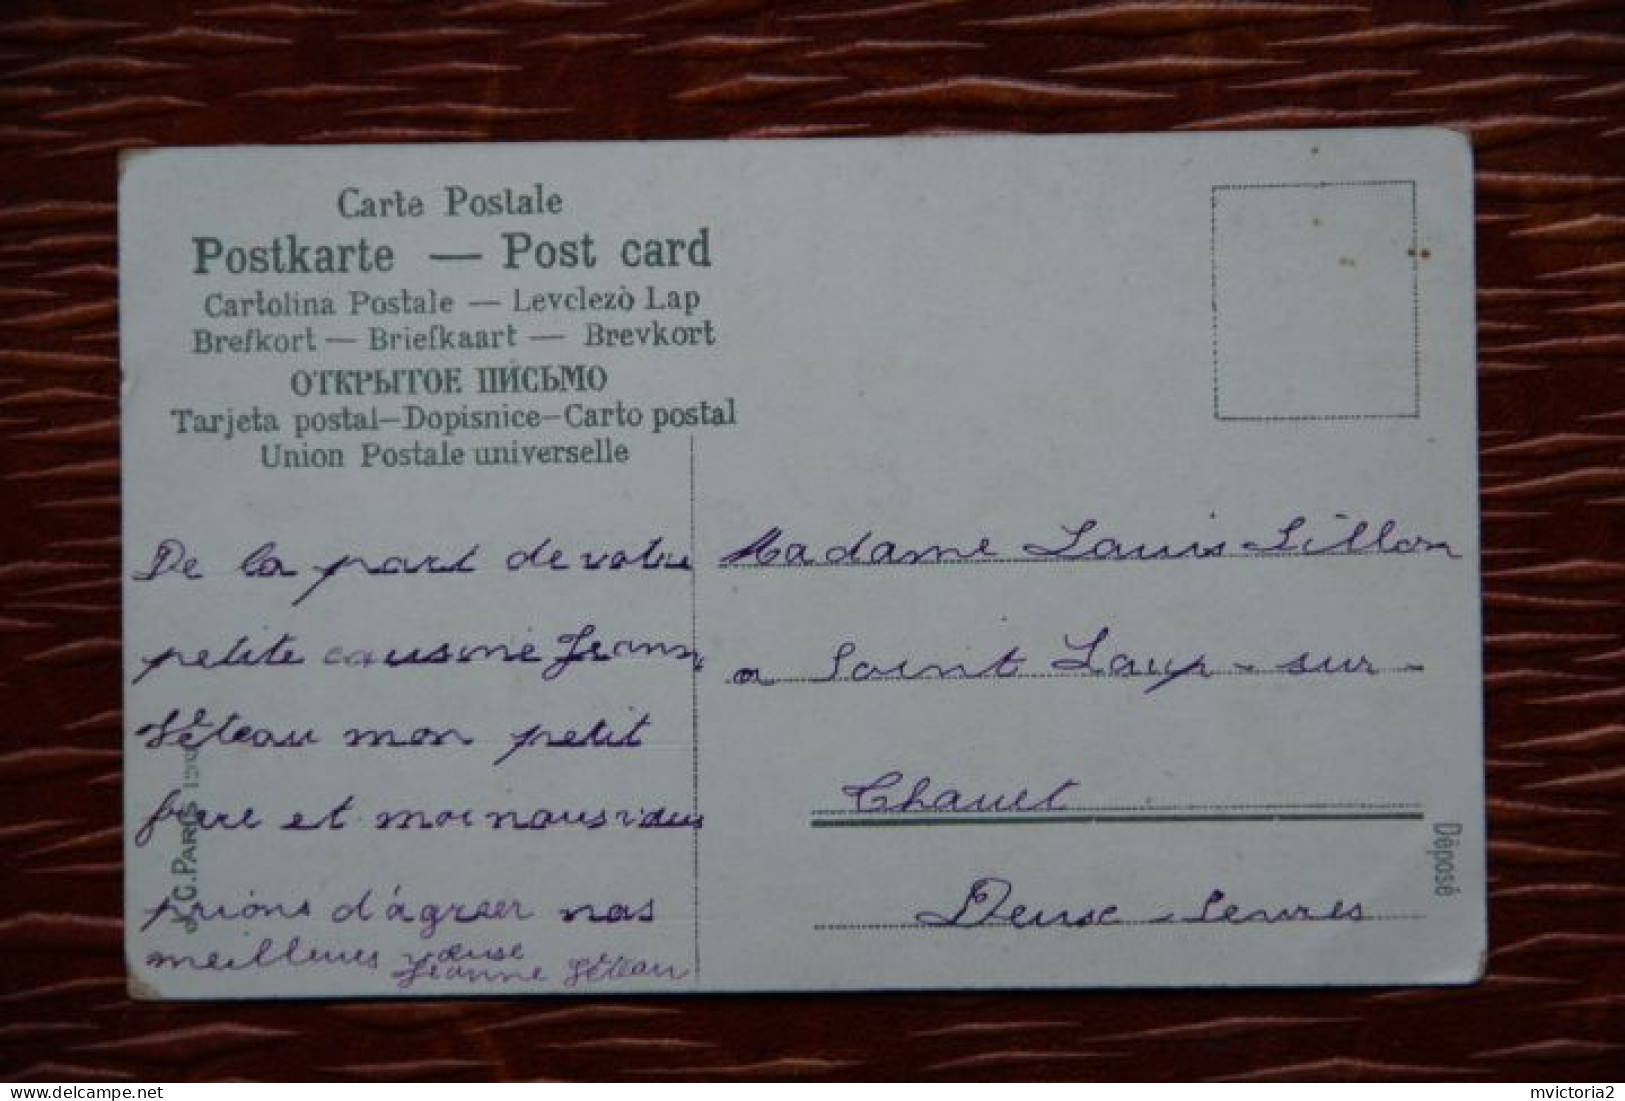 Carte Postale
Postkarte — Post card
Cartolina Postale — Levelezò Lap
Brefkort — Briefkaart — Brevkort
ОТКРЫТОЕ ПИСЬМО
Tarjeta postal—Dopisnice—Carto postal
Union Postale universelle
De la part de votre
petite causine Jeanne
mon petit
frere et moi nous vous
prions d'agreer nos
meilleures veuse
Jeanne
Madame Lauis Lillon
a Saint Laup-sur-
Chauet
Deuse-Sevres
G. PARIS
Déposé
mvictoria2